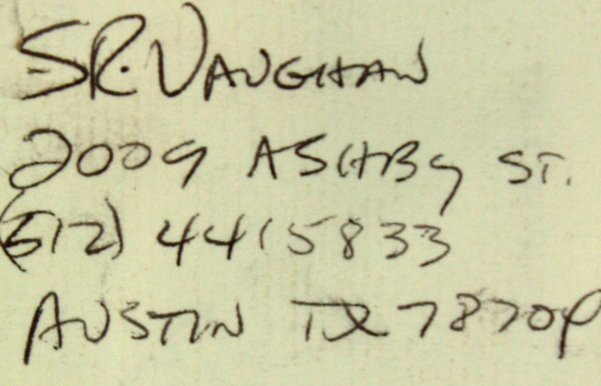 SR. VAUGHAN
2009 ASHBY ST.
(512) 441 5833
AUSTIN TX 78704